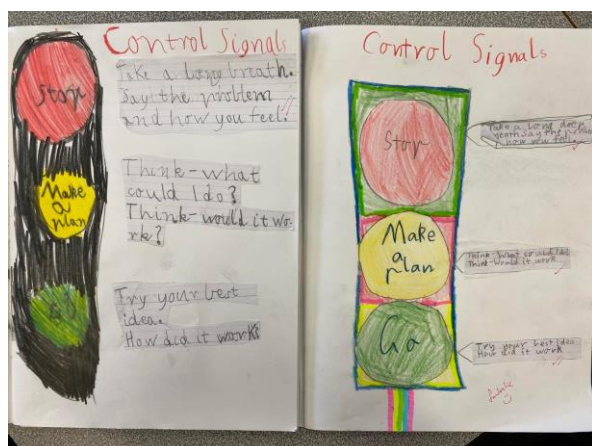 Control Signals
Stop
Take a long breath.
Say the problem
and how you feel!
Make
a
plan
Think-what
could I do?
Think-would it wo-
rk?
Go
Try your best
idea.
How did it work?
Control Signals
Stop
Take a long deep
Say the
how you feel
Make
a
plan
Think-What could I do
Think-Would it work
Go
Try your best idea
How did it work